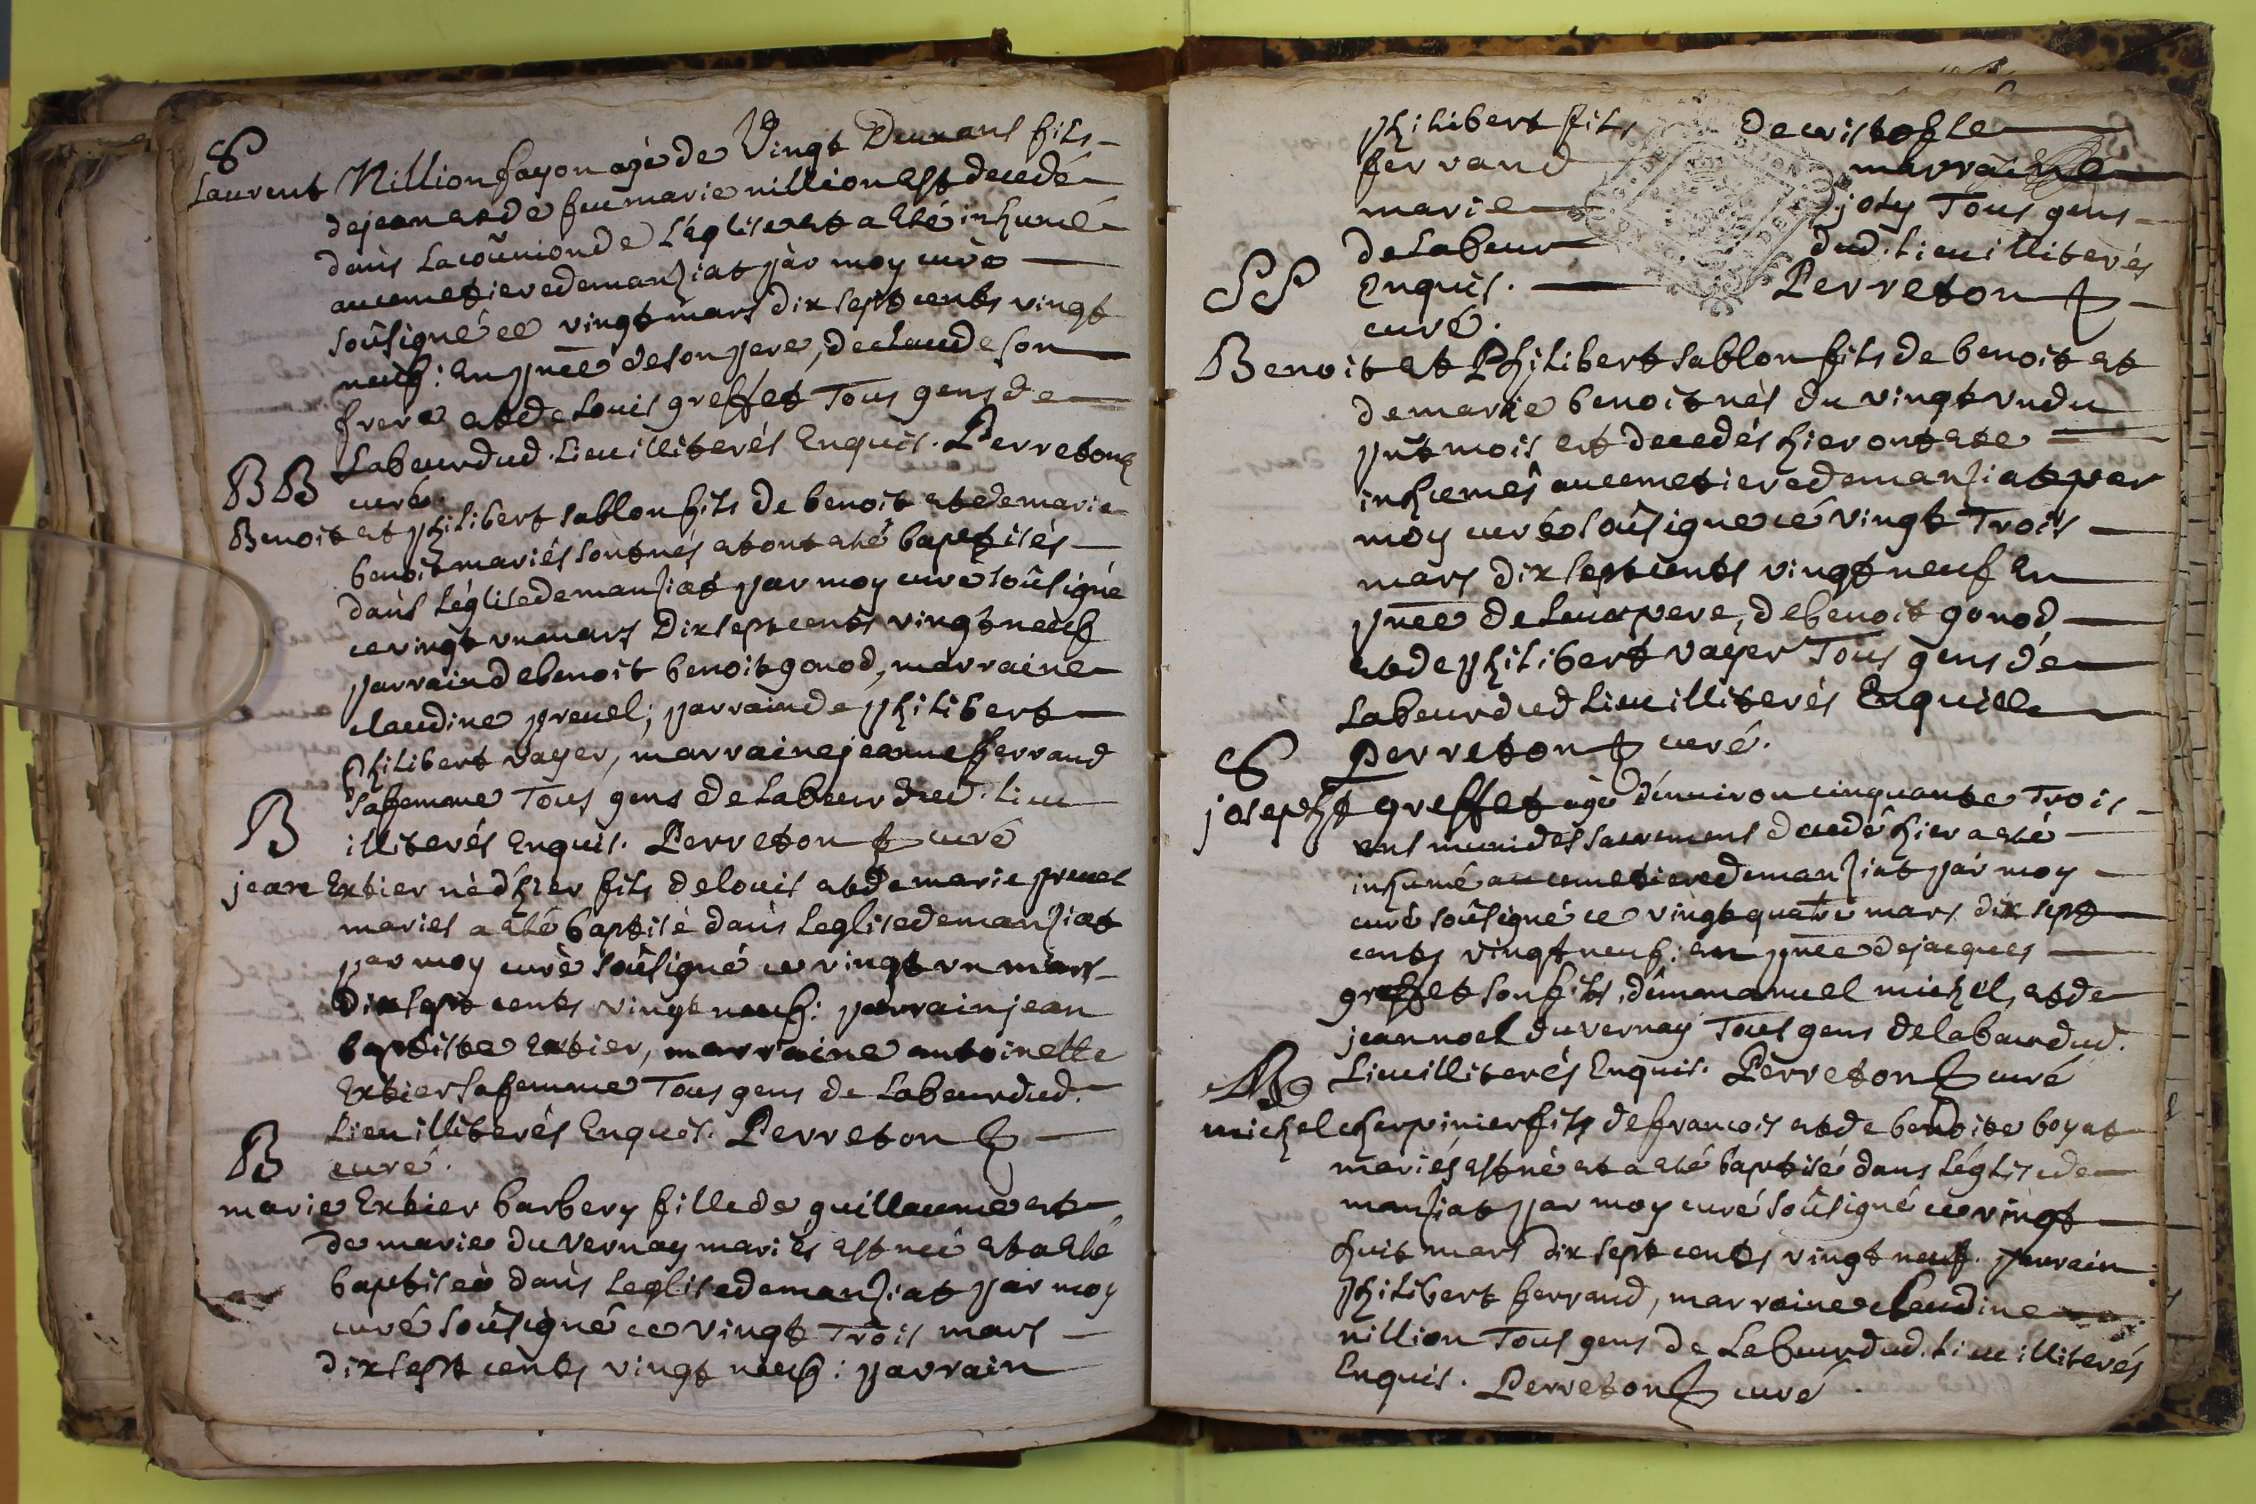 S
Laurent Nillion fayon agé de Vingt Deux ans fils
de jean et de feu marie nillion est decedé
dans la coûnion de L'église et a eté inhumé
au cemetiere de manziat par moy curé
soûsigné ce vingt mars dix sept cents vingt
neuf: En pnce de son pere, de claude son
frere et de Louis greffet Tous gens de
Labeur dud. Lieu illiterés Enquis. Perreton
curé.
BB
Benoit et philibert sablon fils de benoit et de marie
benoit mariés sont nés et ont eté baptisés
dans l'église de manziat par moy curé soûsigné
ce vingt un mars Dix sept cents vingt neuf
parrain de benoit benoit gonod, marraine
claudine preuel; parrain de philibert
Philibert vayer, marraine jeanne ferrand
sa femme Tous gens de Labeur dud. Lieu
illiterés Enquis. Perreton curé
B
jean Extier né d'hier fils de louis et de marie preuel
mariés a eté baptisé dans Leglise de manziat
par moy curé soûsigné ce vingt un mars
Dix sept cents vingt neuf: parrain jean
baptiste Extier, marraine antoinette
Extier sa femme Tous gens de Labeur dud.
Lieu illiterés Enquis. Perreton
curé.
B
marie Extier barbery fille de guillaume et
de marie du vernay mariés est née et a eté
baptisée dans Leglise de manziat par moy
curé soûsigné ce vingt Trois mars
dix sept cents vingt neuf: parrain
philibert fils de cristofle
ferrand marraine
marie joly Tous gens
de Labeur dud. Lieu illiterés
Enquis. Perreton
curé.
SS
Benoit et Philibert sablon fils de benoit et
de marie benoit nés du vingt un du
pnt mois et decedés hier ont eté
inhumés au cemetiere de manziat par
moy curé soûsigné ce vingt Trois
mars dix sept cents vingt neuf En
pnce de Leur pere, de benoit gonod
et de philibert vayer Tous gens de
Labeur dud Lieu illiterés Enquis
Perreton curé.
S
josepht greffet agé d'environ cinquante Trois
ans muni des sacremens decedé hier a eté
inhumé au cemetiere de manziat par moy
curé soûsigné ce vingt quatre mars dix sept
cents vingt neuf: en pnce de jacques
greffet son fils, d'emmanuel michel, et de
jean noel du vernay Tous gens de labeur dud.
Lieu illiterés Enquis. Perreton curé
B
michel cherpinier fils de francois et de benoite boyat
mariés est né et a eté baptisé dans l'église de
manziat par moy curé soûsigné ce vingt
huit mars dix sept cents vingt neuf. parrain
philibert ferrand, marraine claudine
nillion Tous gens de Labeur dud. Lieu illiterés
Enquis. Perreton curé.